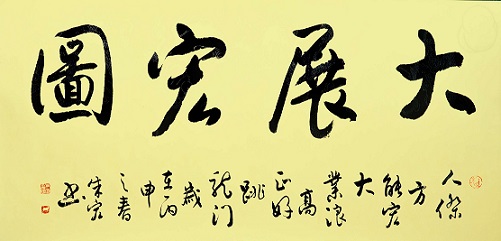 大展宏圖
人傑方能宏大業浪高正好跳龍门歲在丙申之春朱宏